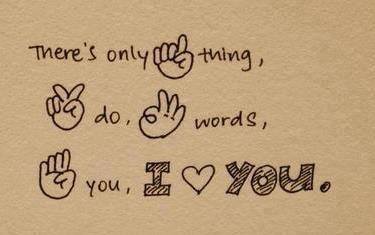 There's only ☝ thing,
✌ do, 👌 words,
you, I ♡ You.